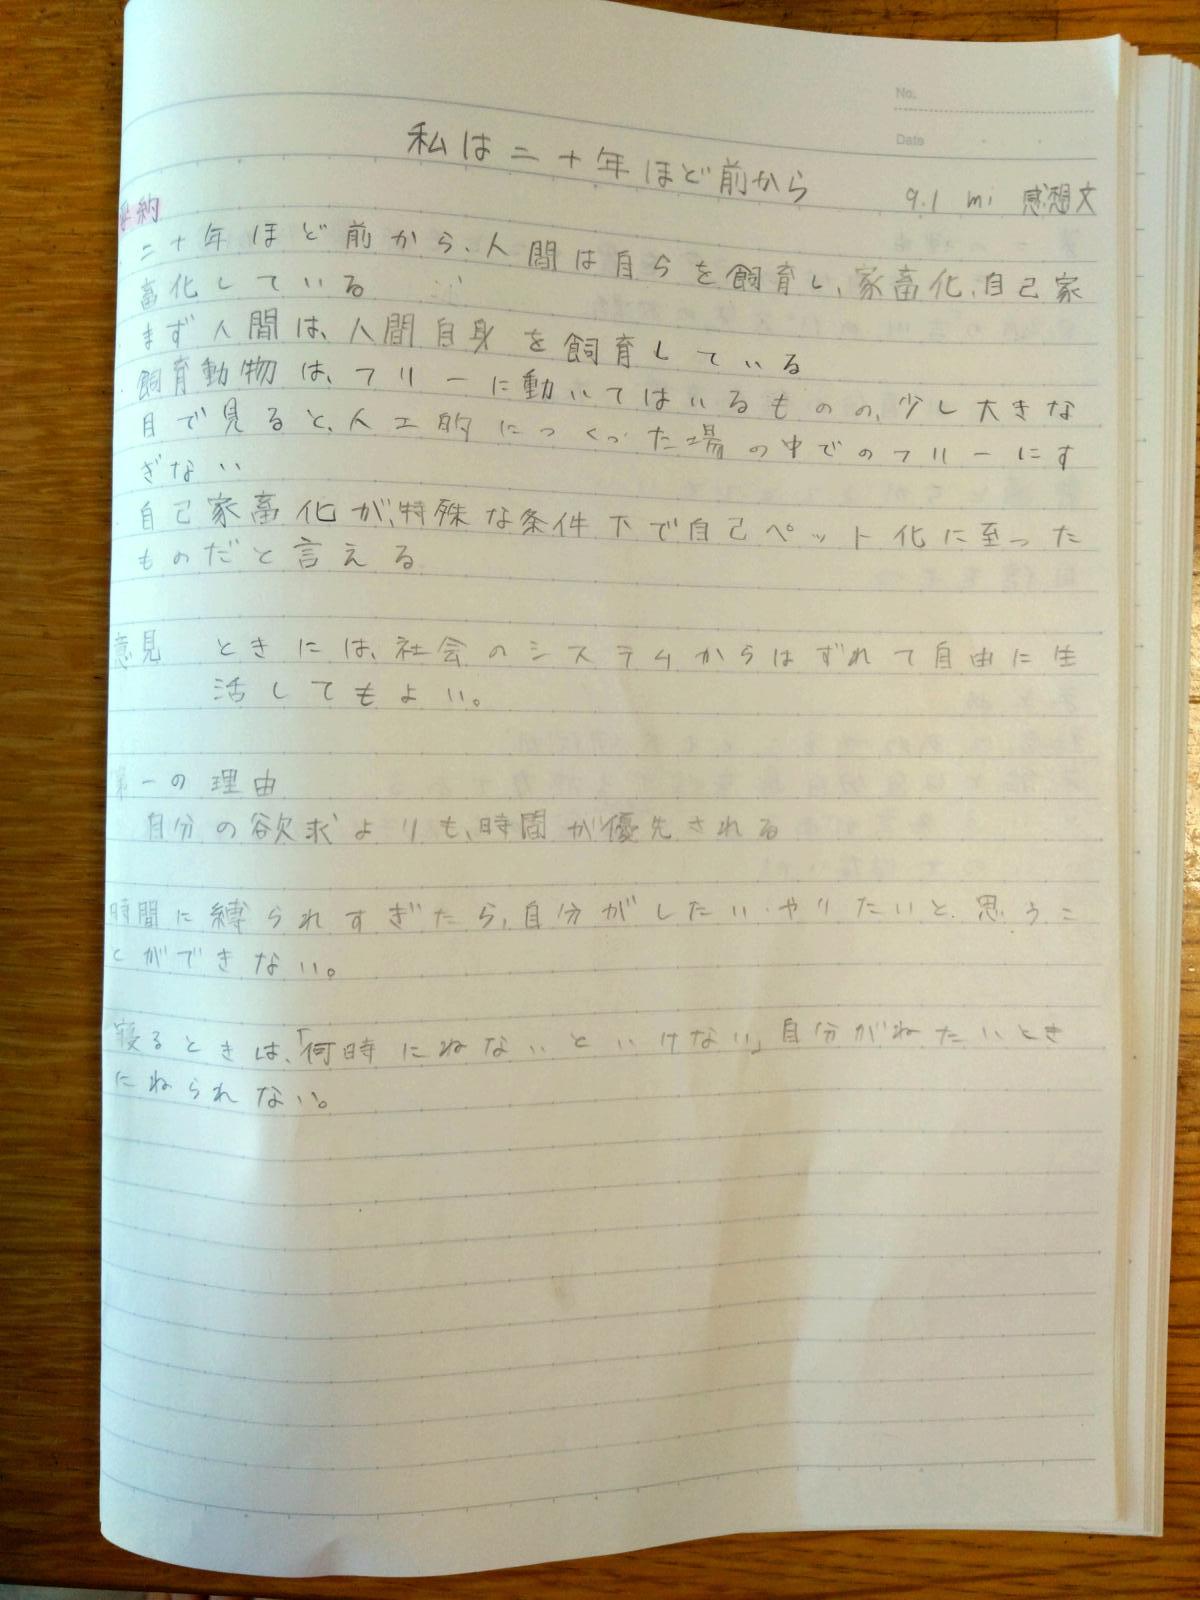 No.
Date
私は二十年ほど前から
9.1 mi 感想文
要約
・二十年ほど前から、人間は自らを飼育し、家畜化、自己家
畜化している
・まず人間は、人間自身を飼育している
・飼育動物は、フリーに動いてはいるものの、少し大きな
目で見ると、人工的につくった場の中でのフリーにす
ぎない
・自己家畜化が、特殊な条件下で自己ペット化に至った
ものだと言える
意見 ときには、社会のシステムからはずれて自由に生
活してもよい。
第一の理由
自分の欲求よりも、時間が優先される
時間に縛られすぎたら、自分がしたい・やりたいと思うこ
とができない。
寝るときは、「何時にねないといけない」自分がねたいとき
にねられない。